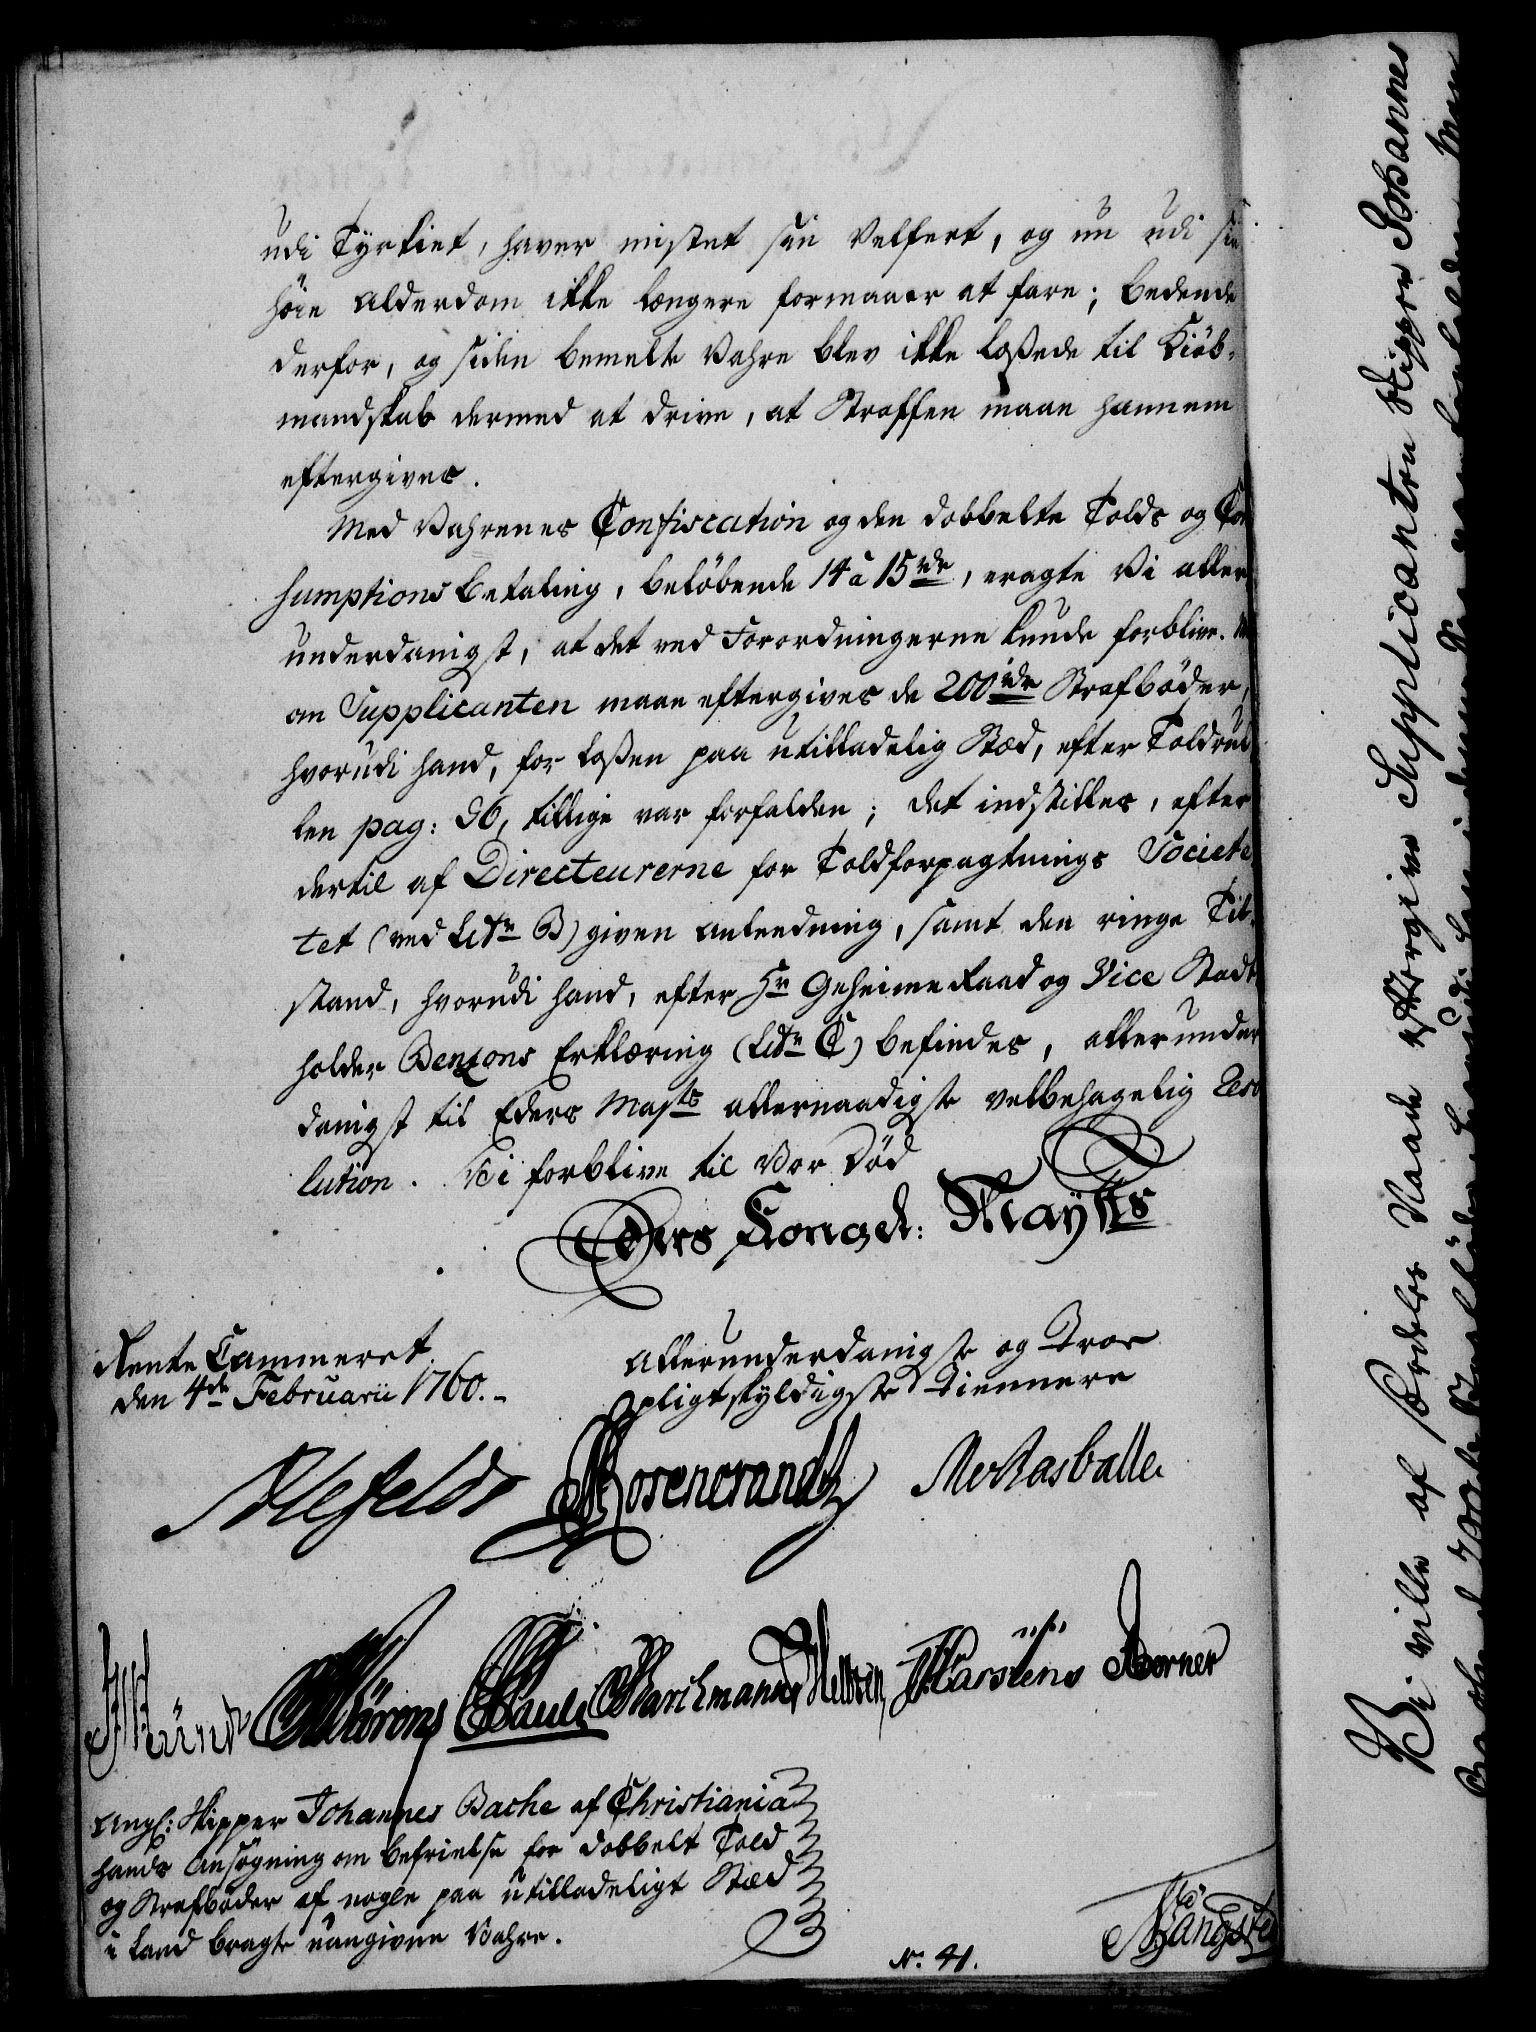 udi Tyrkiet, haver mistet sin Velfert, og nu udi sin
høie Alderdom ikke længere formaaer at fare; bedende
derfor, og siden bemelte Vahre blev ikke loßede til Kiöb-
mandskab dermed at drive, at Straffen maae hannem
eftergives.
Med Vahrenes Confiscation og den dobbelte Tolds og Con
sumptions Betaling, beløbende 14 a 15 rdr, eragte Vi aller
underdanigst, at det ved Forordningerne kunde forblive.
om Supplicanten maae eftergives de 200 rdr Strafbøder,
hvorudi hand, for loßen paa utilladelig Stæd, efter Toldrul
len pag: 96, tillige var forfalden; det indstilles, efter
dertil af Directeurerne for Toldforpagtnings Societe
tet (ved Litr B) given Anleedning, samt den ringe Til-
stand, hvorudi hand, efter Hr Geheime Raad og Vice Stadt
holder Benzons Erklæring (Litr C) befindes, allerunder
danigst til Eders Mayts allernaadigste velbehagelig Reso
lution. Vi forblive til Vor Død
Eders Kongel: Mayts
Rente Cammeret
den 4de Februarii 1760.-
Allerunderdanigste og Troe
pligtskyldigste Tiennere
Ahlefeldt Rosencrandtz
Pauli Barchmann Karstens Berner
Ang: Skipper Johannes Bache af Christiania
hands Ansøgning om befrielse for dobbelt Told
og Strafbøder af nogle paa utilladeligt Stæd
i Land bragte uangivne Vahre.
No. 41.
Vi ville af særdeles Naade eftergive Supplicanten Skipper Johannes